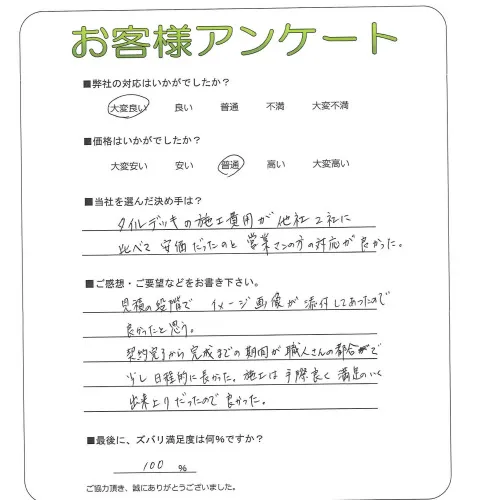 お客様アンケート
■弊社の対応はいかがでしたか？
大変良い 良い 普通 不満 大変不満
■価格はいかがでしたか？
大変安い 安い 普通 高い 大変高い
■当社を選んだ決め手は？
タイルデッキの施工費用が他社2社に
比べて安価だったのと営業マンの方の対応が良かった。
■ご感想・ご要望などをお書き下さい。
見積の段階で イメージ画像が添付してあったので
良かったと思う。
契約完了から完成までの期間が職人さんの都合で
少し日程的に長かった。施工は手際良く満足のいく
出来上りだったので良かった。
■最後に、ズバリ満足度は何%ですか？
100 %
ご協力頂き、誠にありがとうございました。